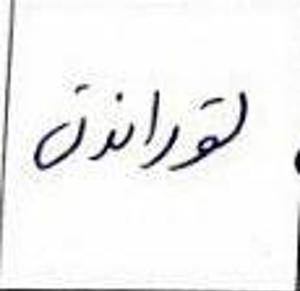 لتوراندن